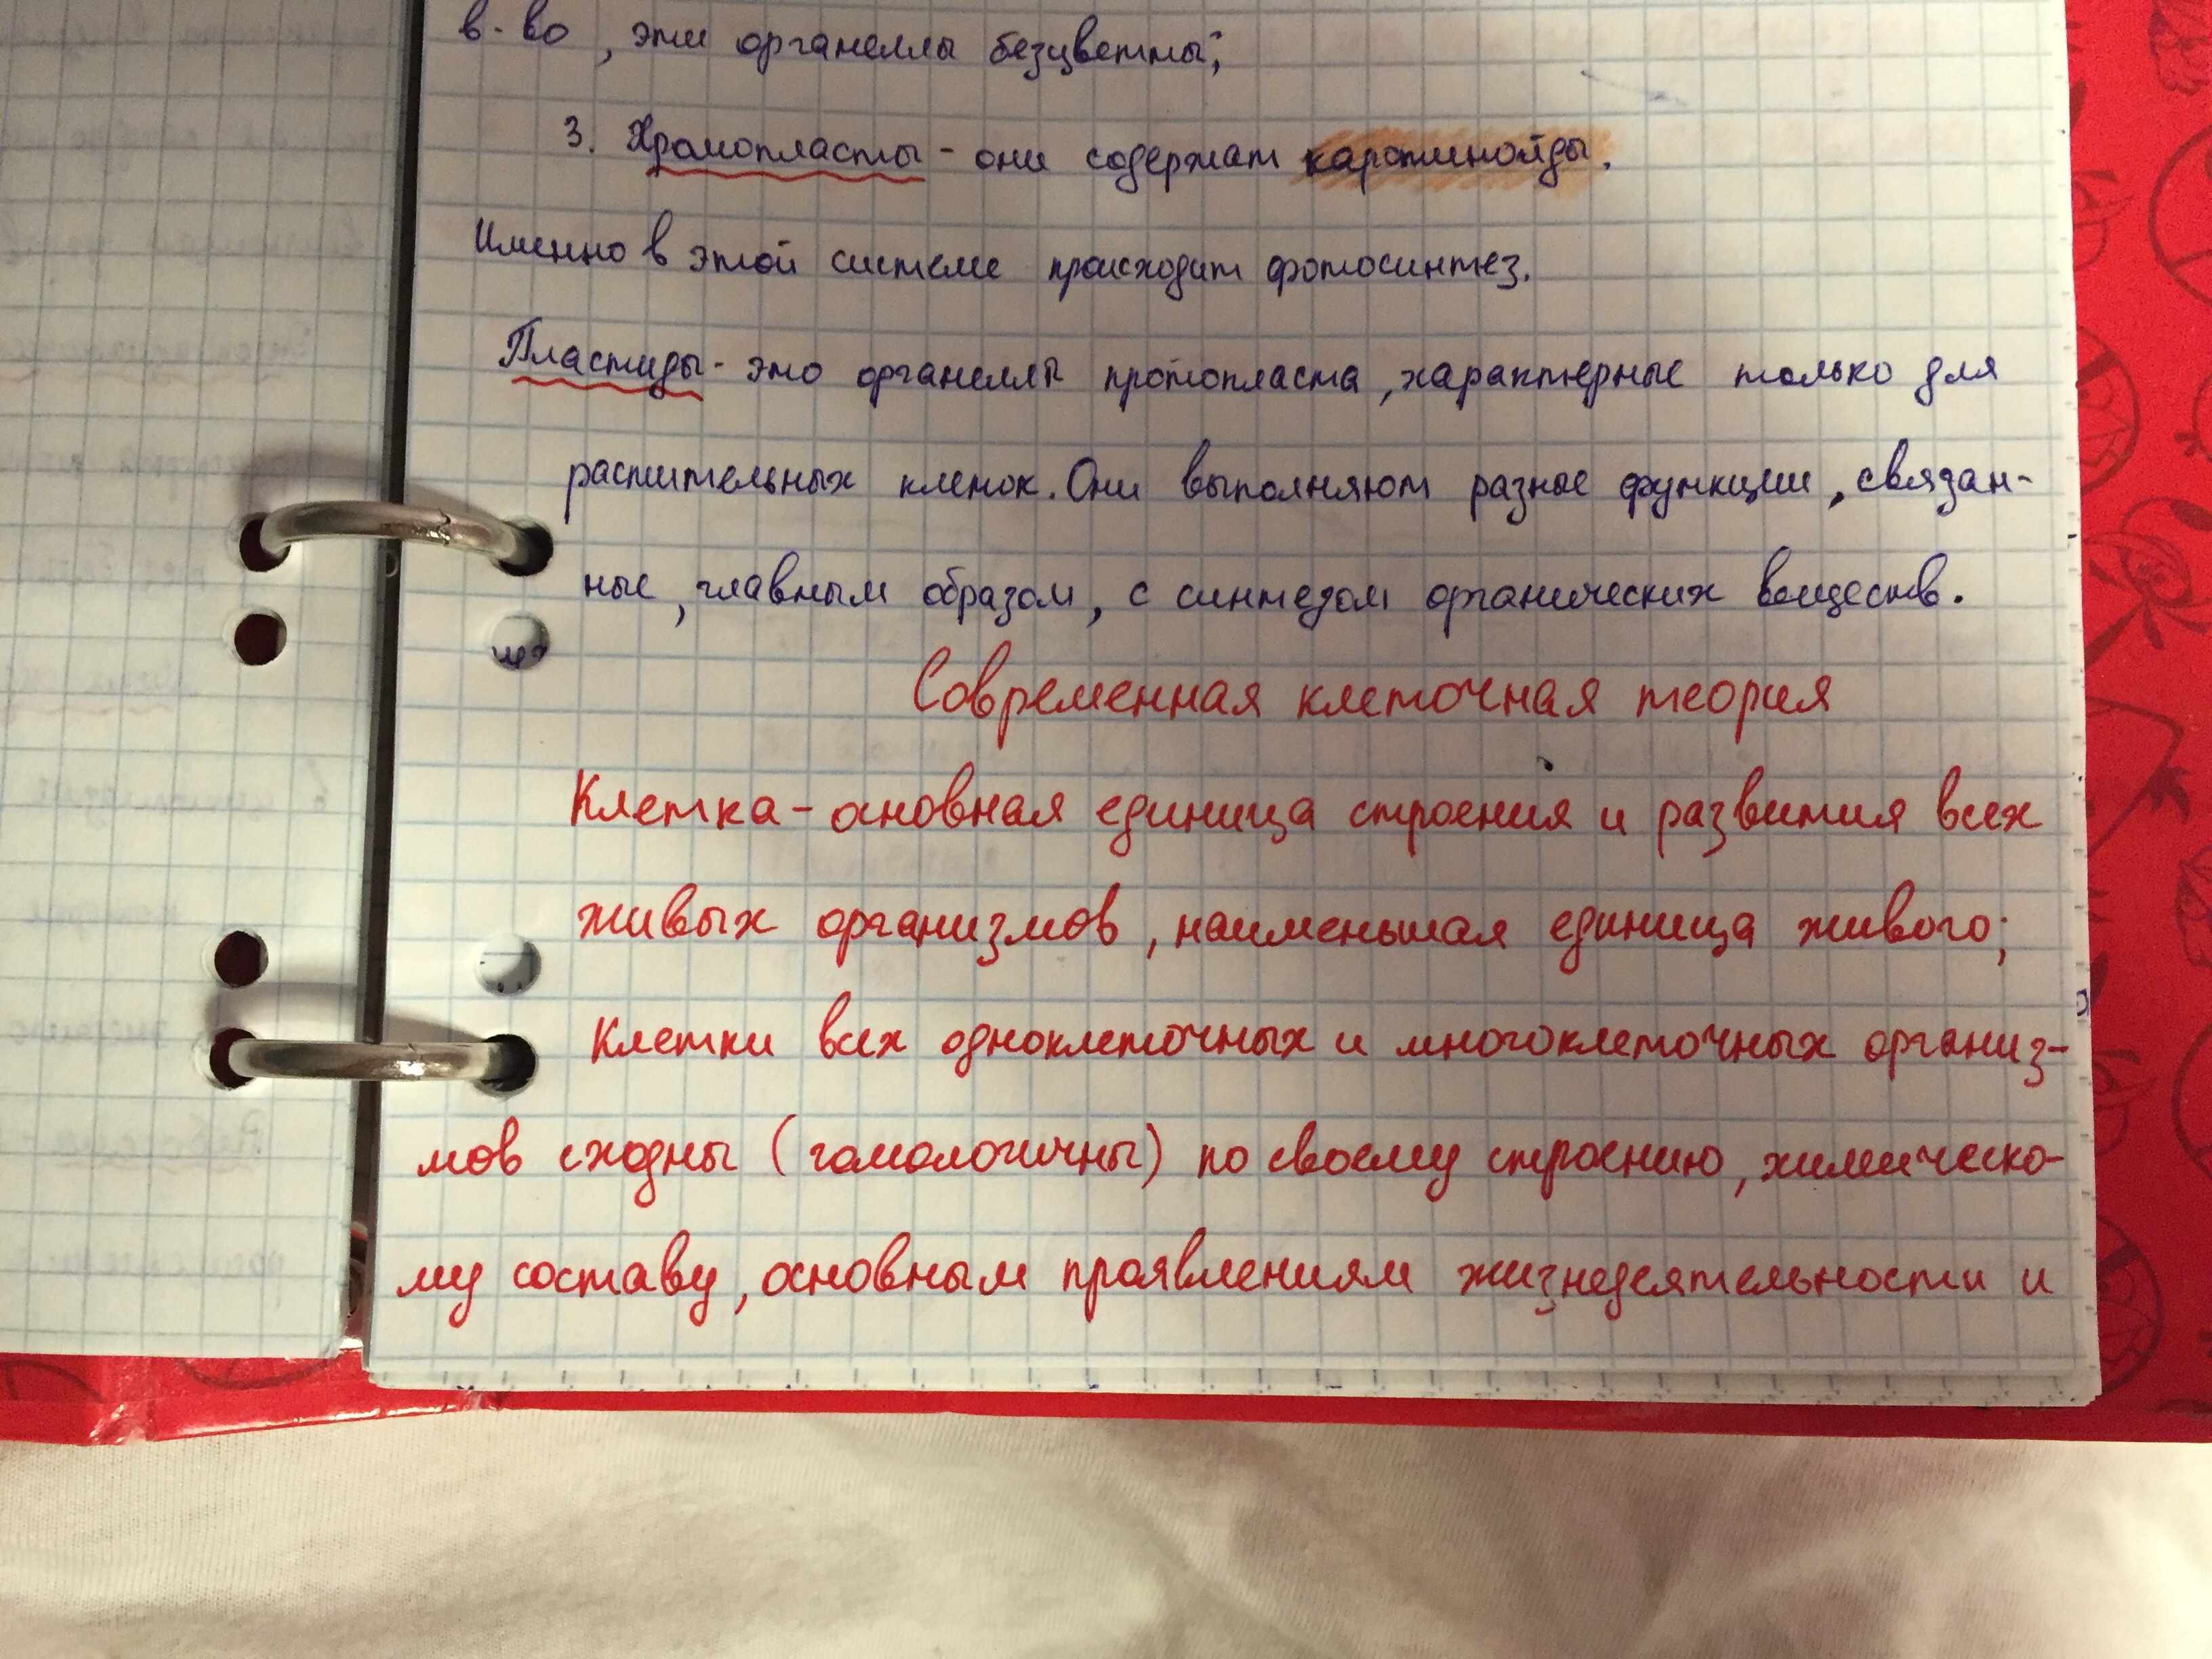 в-во, эти органеллы безцветны;
3. Хромопласты - они содержат каротинойды.
Именно в этой системе происходит фотосинтез.
Пластиды - это органеллы протопласта, характерные только для
растительных клеток. Они выполняют разные функции, связан-
ные, главным образом, с синтезом органических веществ.
Современная клеточная теория
Клетка - основная единица строения и развития всех
живых организмов, наименьшая единица живого;
Клетки всех одноклеточных и многоклеточных организ-
мов сходны (гомологичны) по своему строению, химическо-
му составу, основным проявлениям жизнедеятельности и